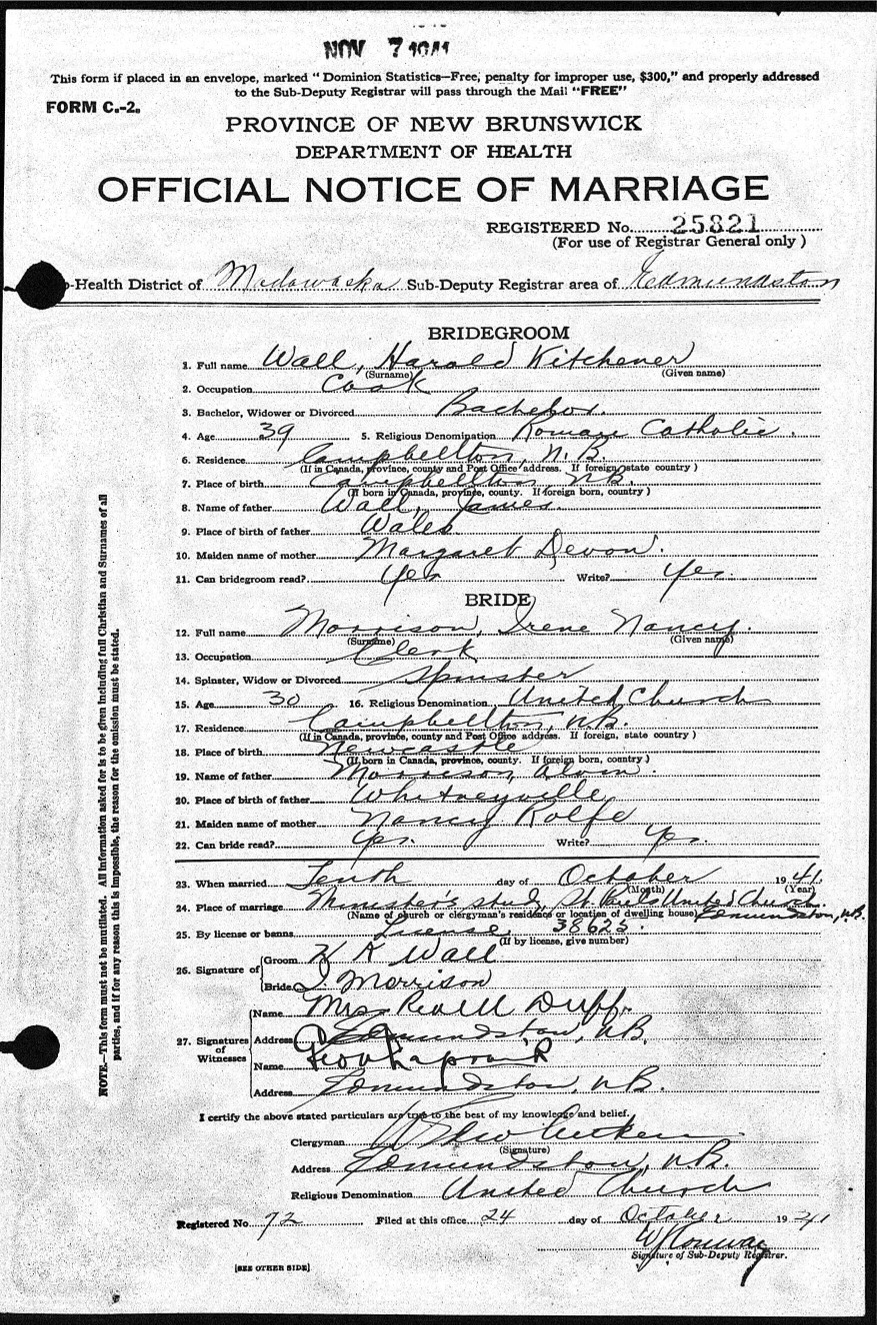 NOV 7 1941
This form if placed in an envelope, marked "Dominion Statistics—Free, penalty for improper use, $300," and properly addressed
to the Sub-Deputy Registrar will pass through the Mail "FREE"
FORM C.-2.
PROVINCE OF NEW BRUNSWICK
DEPARTMENT OF HEALTH
OFFICIAL NOTICE OF MARRIAGE
REGISTERED No. 25821
(For use of Registrar General only)
-Health District of Madawaska Sub-Deputy Registrar area of Edmundston
BRIDEGROOM
1. Full name Wall, Harold Kitchener
(Surname) (Given name)
2. Occupation Cook
3. Bachelor, Widower or Divorced Bachelor.
4. Age 39 5. Religious Denomination Roman Catholic.
6. Residence Campbellton, N.B.
(If in Canada, province, county and Post Office address. If foreign state country)
7. Place of birth Campbellton, N.B.
(If born in Canada, province, county. If foreign born, country)
8. Name of father Wall, James.
9. Place of birth of father Wales
10. Maiden name of mother Margaret Devon.
11. Can bridegroom read? Yes Write? Yes.
BRIDE
12. Full name Morrison, Irene Nancy.
(Surname) (Given name)
13. Occupation Clerk
14. Spinster, Widow or Divorced Spinster
15. Age 30 16. Religious Denomination United Church
17. Residence Campbellton, N.B.
(If in Canada, province, county and Post Office address. If foreign, state country)
18. Place of birth Newcastle
(If born in Canada, province, county. If foreign born, country)
19. Name of father Morrison, Alvin.
20. Place of birth of father Whitneyville
21. Maiden name of mother Nancy Rolfe
22. Can bride read? Yes. Write? Yes.
23. When married Tenth day of October 1941.
(Month) (Year)
24. Place of marriage Minister's study, St. Paul's United Church.
(Name of church or clergyman's residence or location of dwelling house) Edmundston, N.B.
25. By license or banns License 38623.
(If by license, give number)
26. Signature of Groom H K Wall
Bride I. Morrison
27. Signatures of Witnesses
Name Mrs Duff.
Address Edmundston, N.B.
Name
Address Edmundston, N.B.
I certify the above stated particulars are true to the best of my knowledge and belief.
Clergyman
(Signature)
Address Edmundston, N.B.
Religious Denomination United Church
Registered No. 72 Filed at this office 24 day of October 1941
W J Conway
Signature of Sub-Deputy Registrar.
[SEE OTHER SIDE]
NOTE.—This form must not be mutilated. All information asked for is to be given including full Christian and Surnames of all
parties, and if for any reason this is impossible, the reason for the omission must be stated.